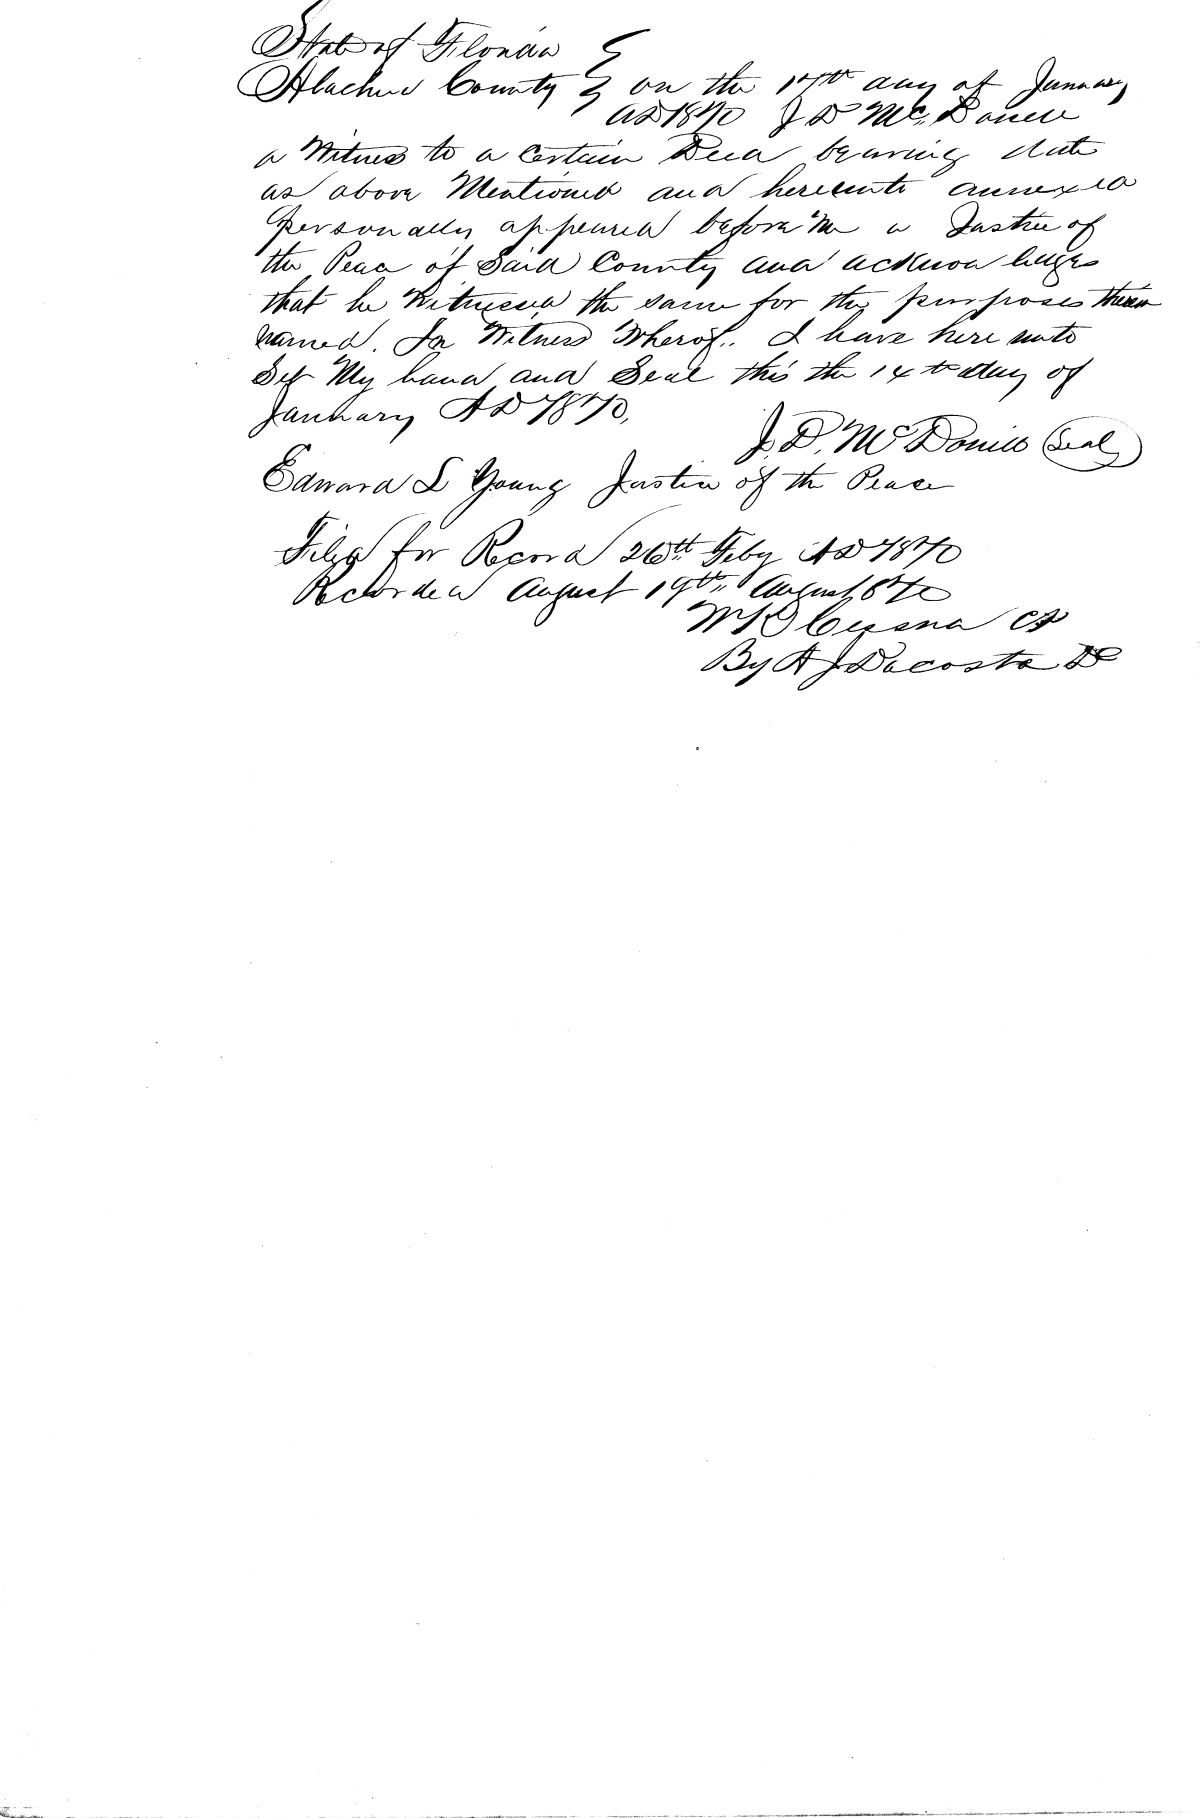 State of Florida
Alachua County on the 14th day of January
AD 1870 J D McDonell
a Witness to a Certain Deed bearing date
as above Mentioned and hereunto annexed
Personally appeared before Me a Justice of
the Peace of Said County and acknowledges
that he Witnessed the same for the purposes therein
named. In Witness Wherof. I have here unto
Set My hand and Seal this the 14th day of
January AD 1870.
J. D. McDonell (Seal)
Edward L Young Justice of the Peace
Filed for Record 26th Feby AD 1870
Recorded August 19th August 1870
By A J Dacosta DC